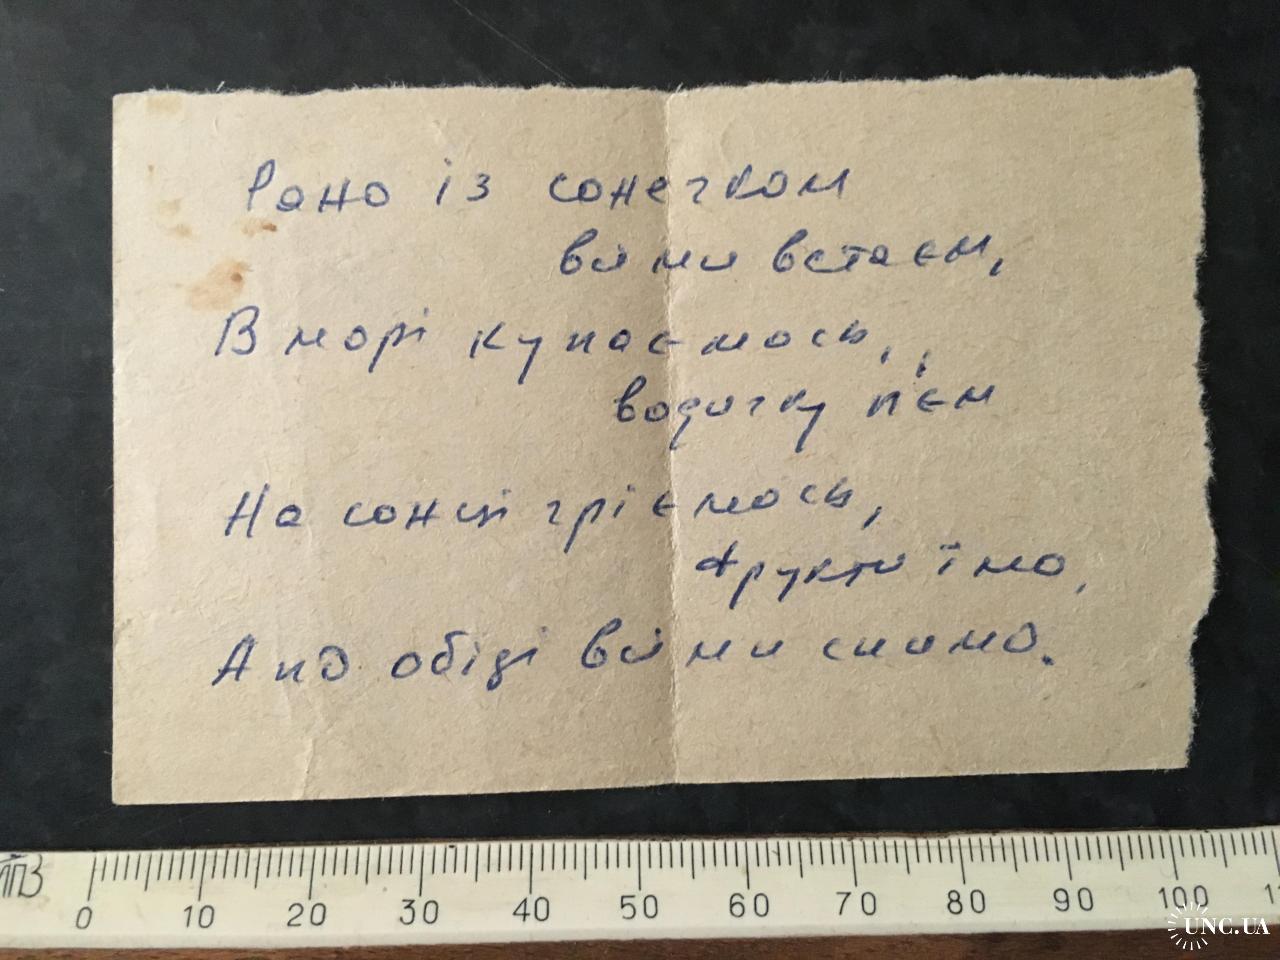 Рано із сонечком
всі ми встаєм,
В морі купаємось,
водичку п'єм
На сонці гріємось,
фрукти їмо,
А по обіді всі ми спимо.
0 10 20 30 40 50 60 70 80 90 100
UNC.UA